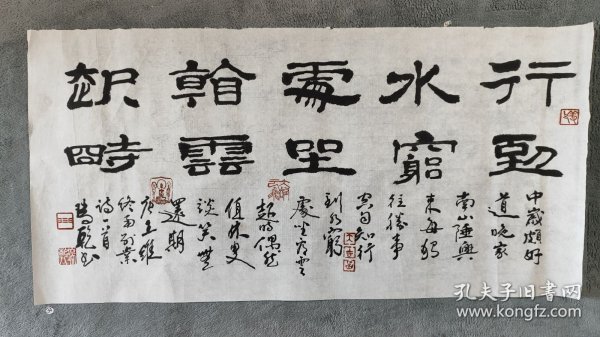 行到
水窮
處坐
看雲
起時
中歲頗好
道晚家
南山陲興
來每獨
往勝事
空自知行
到水窮
處坐看雲
起時偶然
值林叟
談笑無
還期
唐王維
終南別業
詩一首
孔夫子旧书网
kongfz.com